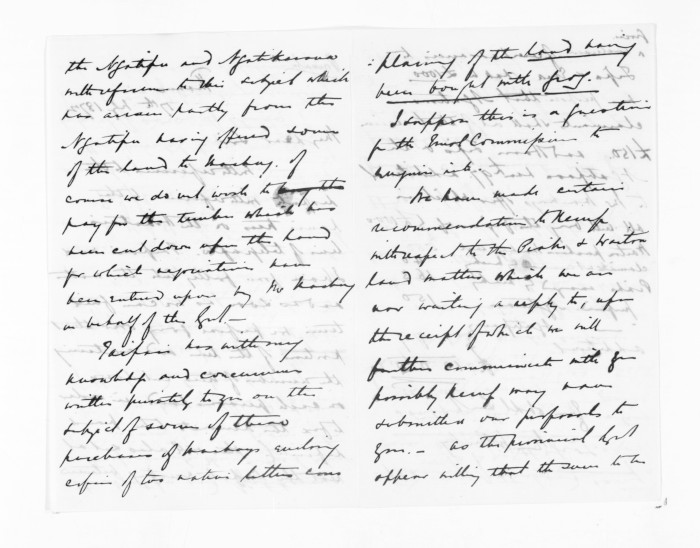 the Ngatipu and Ngatikurana
with reference to this subject which
has arisen partly from the
Ngatipu having offered some
of the land to Mackay. Of
course we do not wish to
pay for the timber which has
been cut down upon the land
for which negociations have
been entered upon by Mr Mackay
on behalf of the Govt —
Taipari has with my
knowledge and concurrence
written privately to you on the
subject of some of these
purchases of Mackays enclosing
copies of two native letters com
: plaining of the land having
been bought with grog.
I suppose this is a question
for the Commission to
inquire into.
We have made certain
recommendations to Kemp
with respect to the Piako & Waitoa
land matters which we are
now waiting a reply to, upon
the receipt of which we will
further communicate with you
possibly Kemp may have
submitted our proposals to
you. — as the provincial Govt
appear willing that the same to be